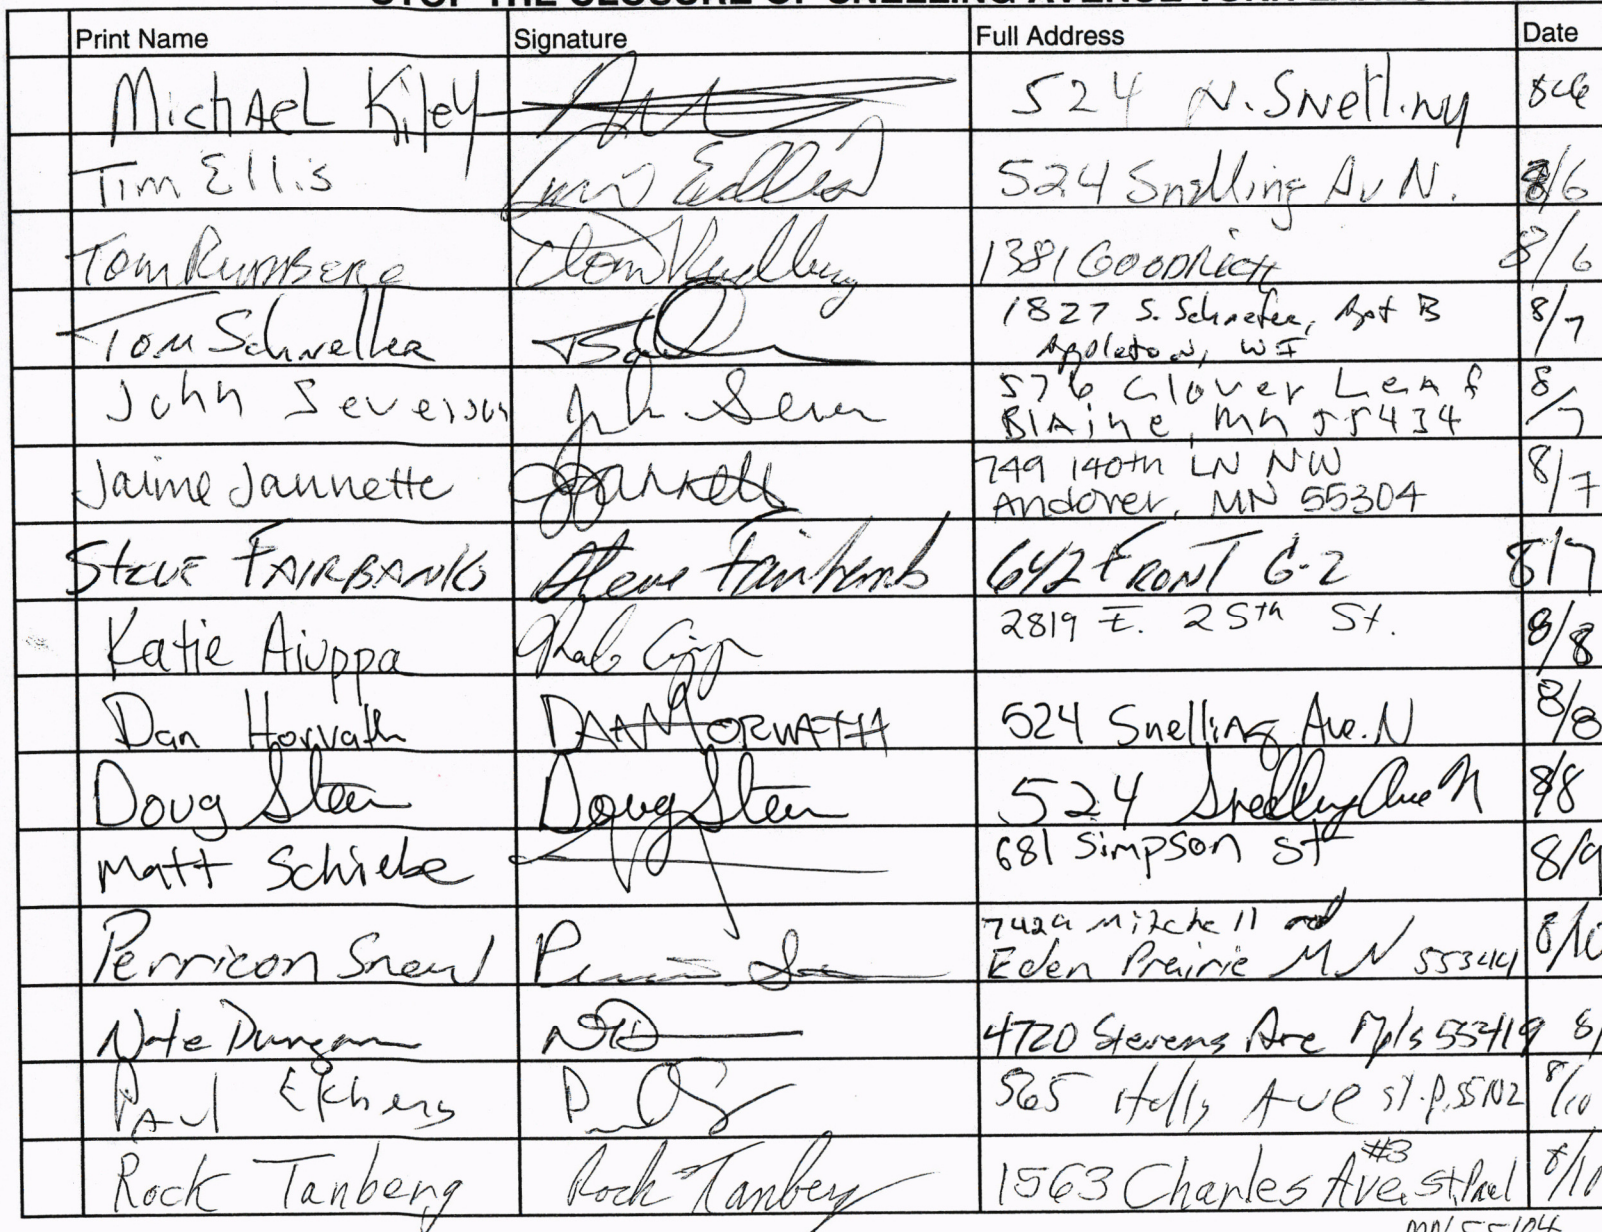 STOP THE CLOSURE OF SNELLING AVENUE TURN
Print Name Signature Full Address Date
Michael Kiley 524 N. Snelling 8-6
Tim Ellis Tim Ellis 524 Snelling Av N. 8/6
Tom Rumberg 1381 Goodrich 8/6
Tom Schneller 1827 S. Schaefer, Apt B 8/7
Appleton, WI
John Severson John Sever 576 Clover Leaf 8/7
Blaine, MN 55434
Jaime Jannette 749 140th LN NW 8/7
Andover, MN 55304
Steve Fairbanks Steve Fairbanks 642 Front G-2 8/7
Katie Aiuppa 2819 E. 25th St. 8/8
Dan Horvath Dan Horvath 524 Snelling Ave. N 8/8
Doug Steen Doug Steen 524 Snelling Ave N 8/8
Matt Schiebe 681 Simpson St 8/9
Perricon Snow 7429 Mitchell rd 8/10
Eden Prairie MN 55344
Nate Dungan 4720 Stevens Ave Mpls 55419 8/
Paul 565 Holly Ave St. P. 55102 8/10
Rock Tanberg Rock Tanberg 1563 Charles Ave. St Paul #3 8/10
MN 55104